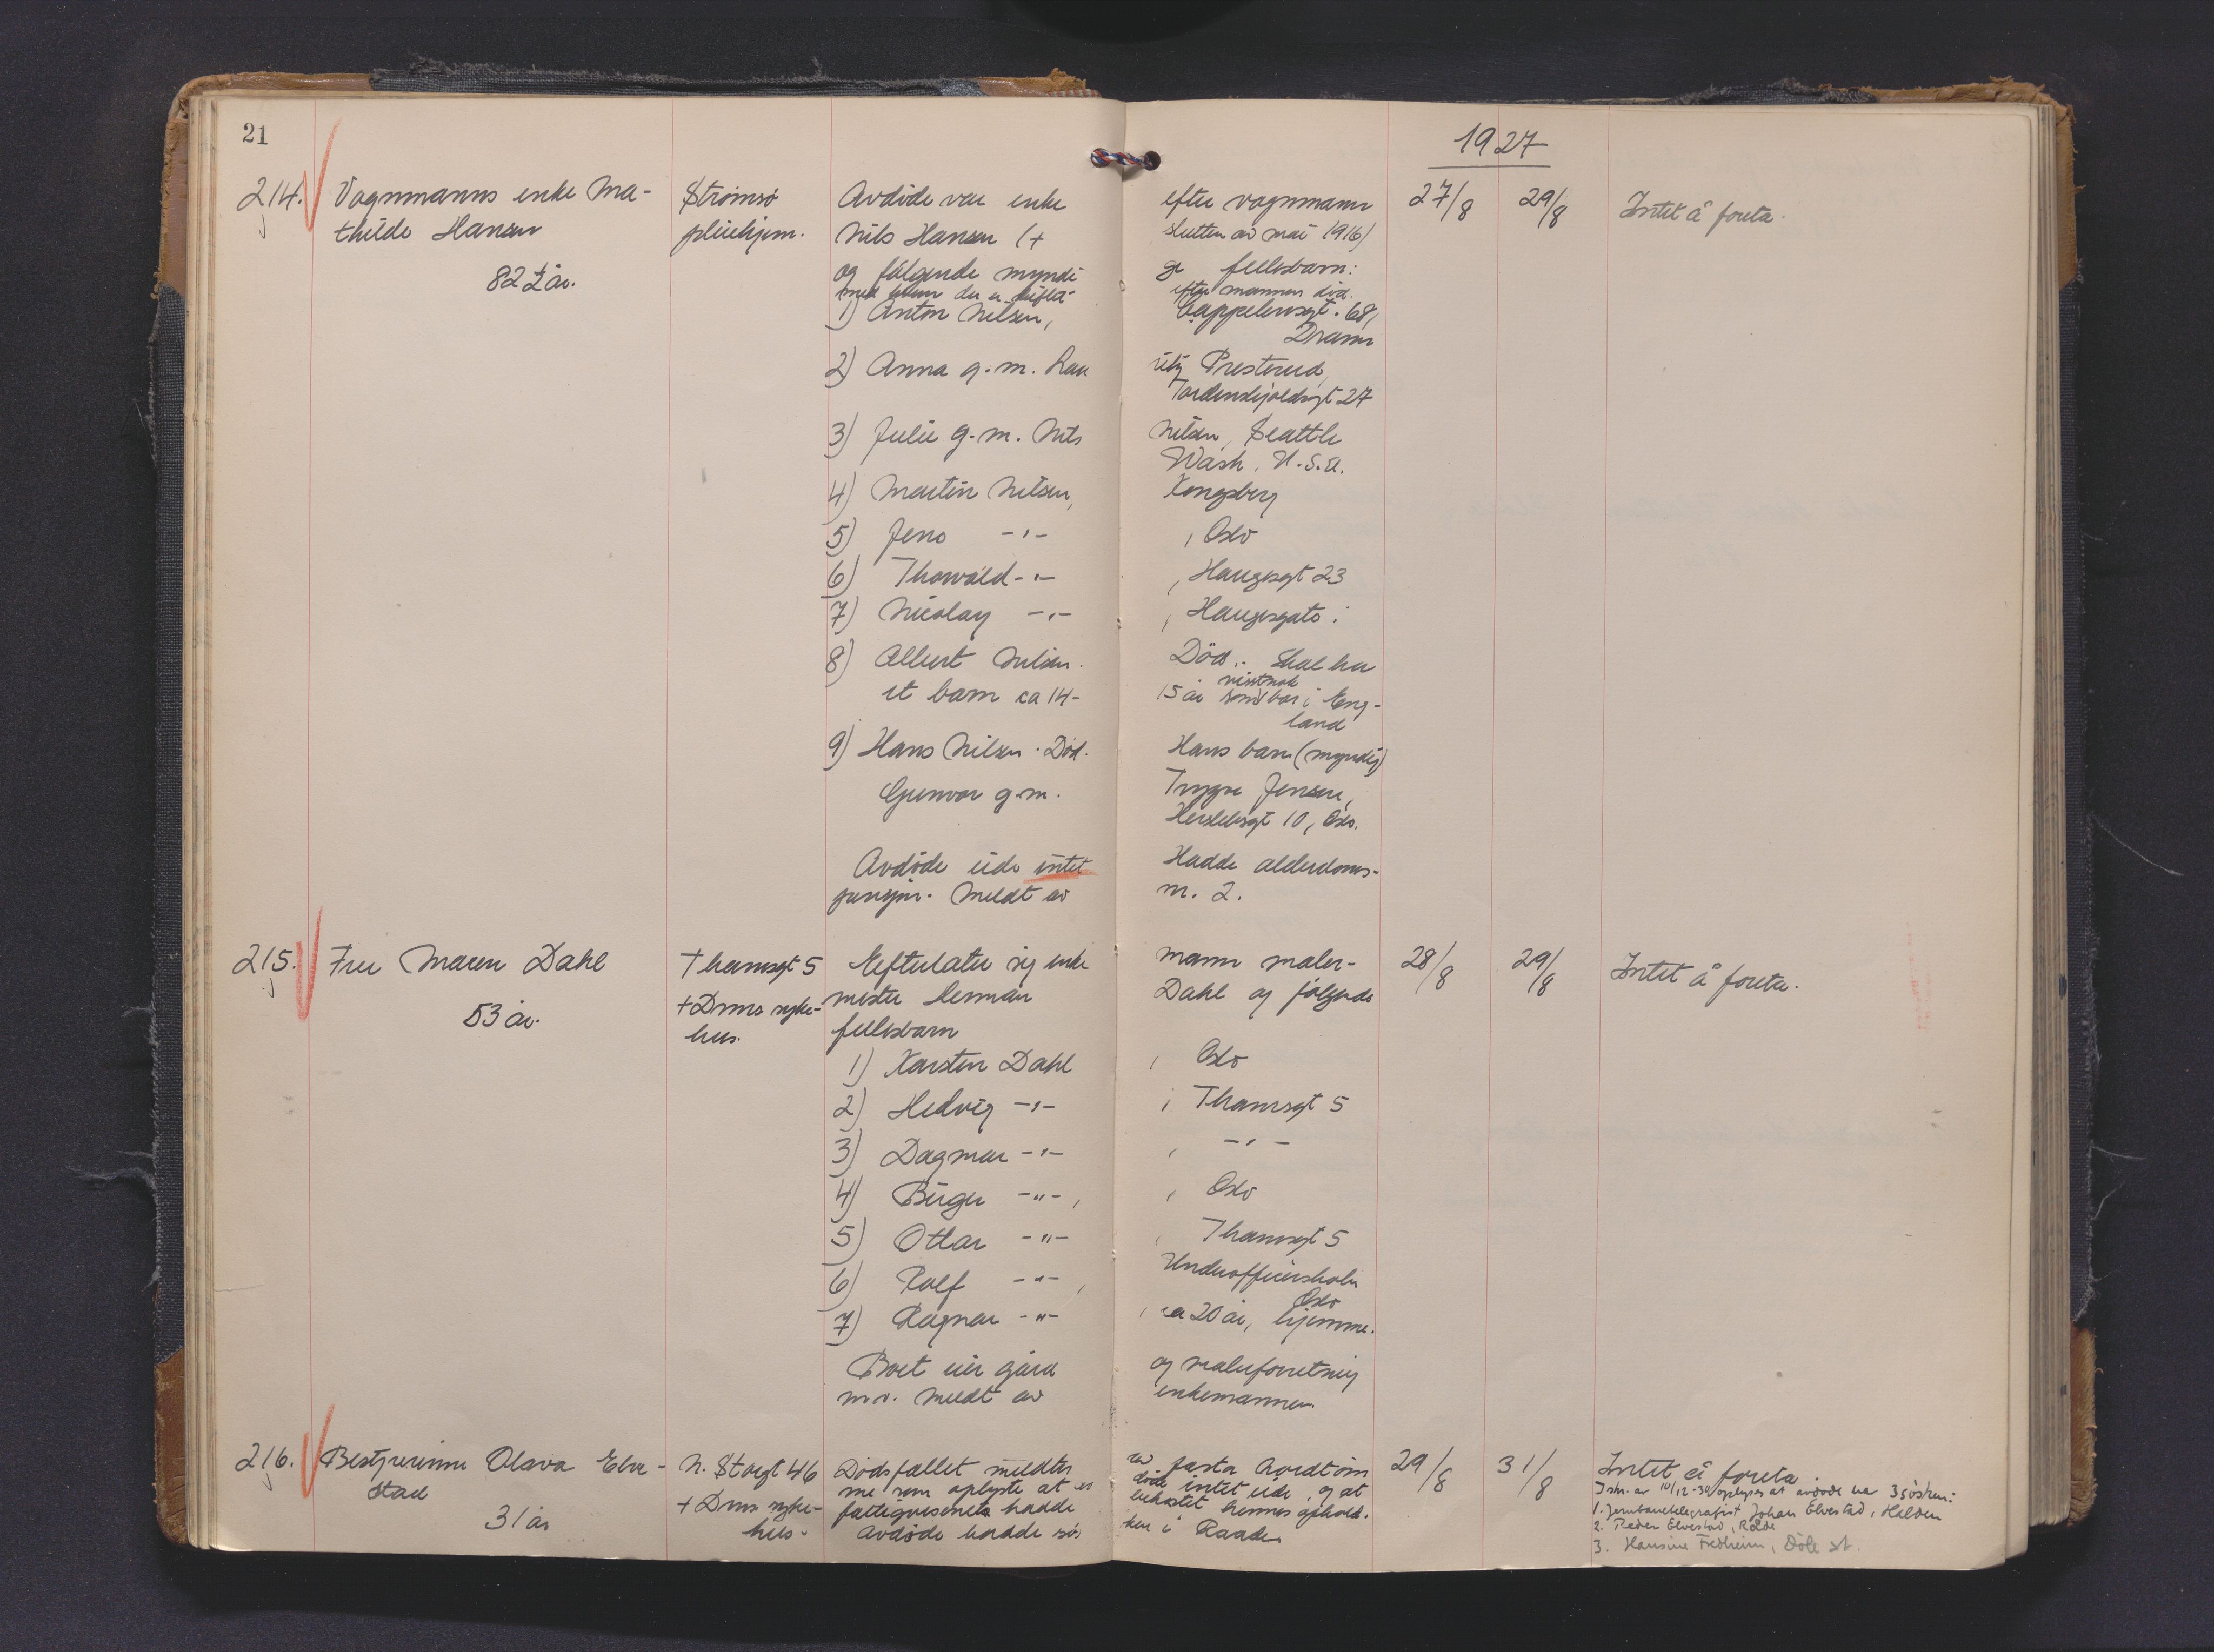 21
1927
214. Vognmanns enke Ma-
thilde Hansen
82 ½ år.
Strømsø
pleiehjem.
Avdøde var enke efter vognmann
Nils Hansen (+ slutten av mai 1916)
og følgende myndige fellesbarn:
med hvem der er skiftet efter mannens död.
1) Anton Nilsen, Cappelensgt. 68,
Dramm
2) Anna g. m. Lauritz Presterud,
Tordenskjoldsgt 27
3) Julie g. m. Nils Nilsen, Seattle
Wash. U.S.A.
4) Martin Nilsen, Kongsberg
5) Jens -"- , Oslo
6) Thorvald -"- , Haugesgt 23
7) Nicolay -"- , Haugesgate
8) Albert Nilsen. Död. Skal ha
et barn ca 14-15 år som visstnok bor i Eng-
land
9) Hans Nilsen. Död. Hans barn (myndig)
Gunvor g.m. Trygve Jensen,
Herslebsgt 10, Oslo.
Avdøde eide intet Hadde alderdoms-
pensjon. Meldt av m. 2.
27/8
29/8
Intet å foreta.
215. Fru Maren Dahl
53 år.
Thamsgt 5
+ Drms syke-
hus.
Efterlater sig enkemann maler-
mester Herman Dahl og følgende
fellesbarn
1) Karsten Dahl , Oslo
2) Hedvig -"- , Thamsgt 5
3) Dagmar -"- , -"-
4) Birger -"- , Oslo
5) Ottar -"- , Thamsgt 5
6) Rolf -"- , Underofficersskolen
Oslo
7) Ragnar -"- , ca 20 år, hjemme.
Boet eier gård og malerforretning
m.v. Meldt av enkemannen.
28/8
29/8
Intet å foreta.
216. Bestyrerinne Olava Elve-
stad
31 år
N. Storgt 46
+ Drms syke-
hus.
Dødsfallet meldtes av
me som oplyste at avdöde intet eide, og at
fattigvesenet hadde bekostet hennes ophold.
Avdøde hadde søsken i Raade
29/8
31/8
Intet å foreta
I skr. av 10/12-30 oplyses at avdøde har 3 søsken:
1. Jernbanetelegrafist Johan Elvestad, Halden
2. Peder Elvestad, Råde
3. Hansine Fredheim, Döle st.